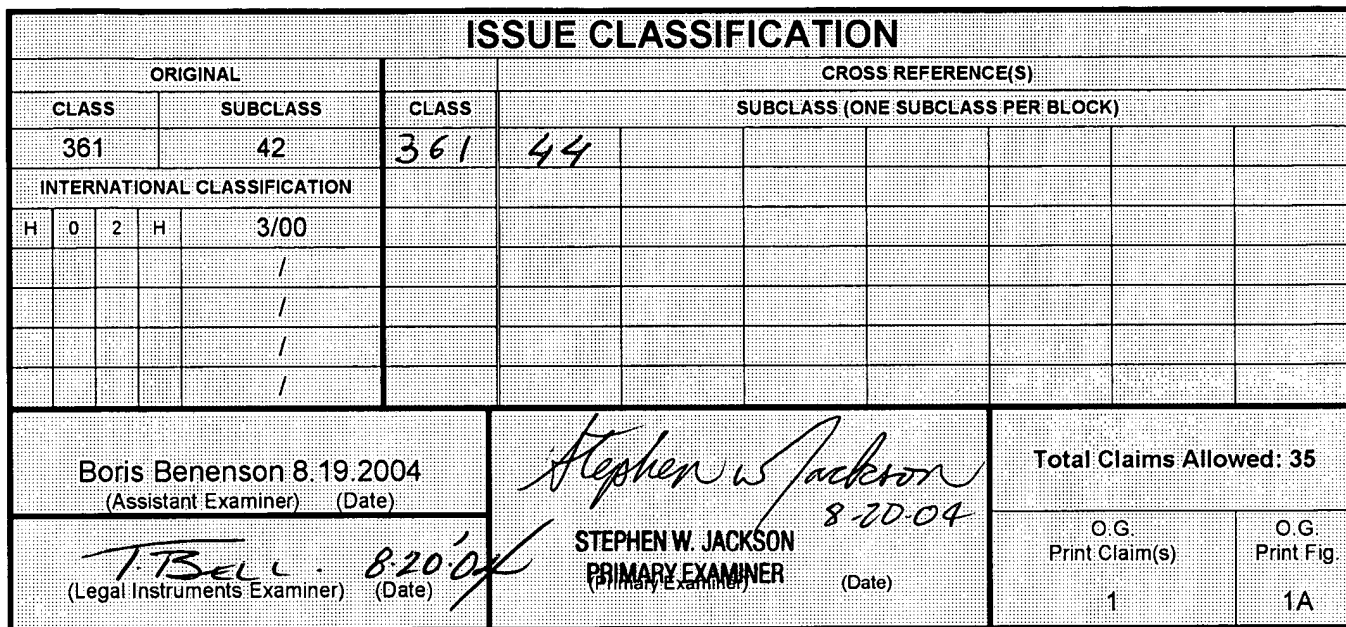 ISSUE CLASSIFICATION
ORIGINAL CROSS REFERENCE(S)
CLASS SUBCLASS CLASS SUBCLASS (ONE SUBCLASS PER BLOCK)
361 42 361 44
INTERNATIONAL CLASSIFICATION
H 0 2 H 3/00
/
/
/
/
Boris Benenson 8.19.2004
(Assistant Examiner) (Date)
T. BELL. 8-20-04
(Legal Instruments Examiner) (Date)
Stephen W Jackson
8-20-04
STEPHEN W. JACKSON
PRIMARY EXAMINER
(Primary Examiner) (Date)
Total Claims Allowed: 35
O.G.
Print Claim(s)
1
O.G.
Print Fig.
1A